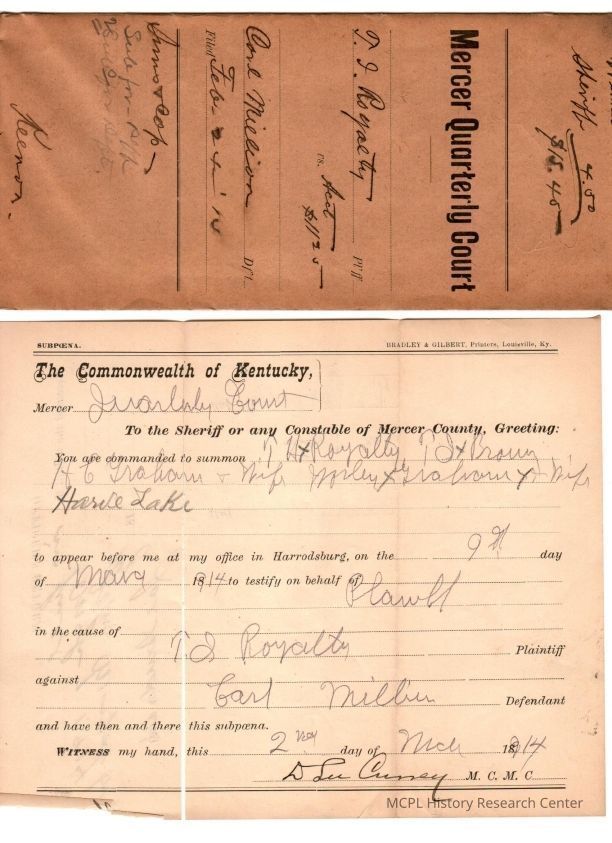 Sheriff 4.50
$5.45
Mercer Quarterly Court
T. I. Royalty Pl'ff
vs. Acct
$11.25
Carl Million Df't.
Filed Feb. 24 '14
Sums & Cop
Keenon.
SUBPŒNA.
BRADLEY & GILBERT, Printers, Louisville, Ky.
The Commonwealth of Kentucky,
Mercer Quarterly Court
To the Sheriff or any Constable of Mercer County, Greeting:
You are commanded to summon T H x Royalty T I x
H E Graham & Wife x Graham x & Wife
Harve Lake
to appear before me at my office in Harrodsburg, on the 9th day
of 1914 to testify on behalf of Plawtf
in the cause of T I Royalty Plaintiff
against Carl Defendant
and have then and there this subpœna.
WITNESS my hand, this 2 day of Mch 1914
M. C. M. C.
MCPL History Research Center